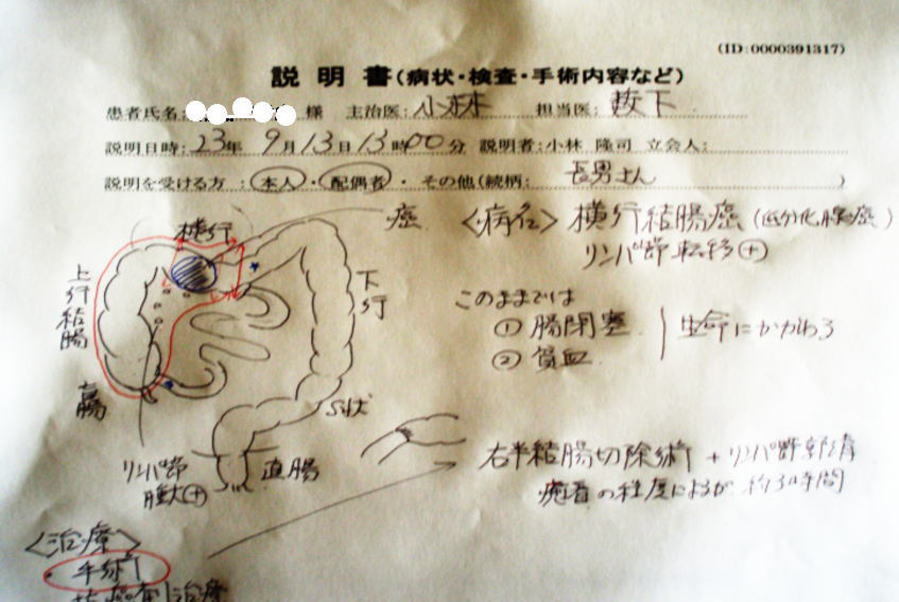 (ID:0000391317)
説明書(病状・検査・手術内容など)
患者氏名: 様 主治医:小林 担当医:薮下
説明日時:23年9月13日13時00分 説明者:小林 隆司 立会人:
説明を受ける方:本人・配偶者・その他(続柄: 長男さん )
癌 <病名> 横行結腸癌(低分化腺癌)
リンパ節転移(+)
横行
上行結腸
下行
このままでは
① 腸閉塞
② 貧血
生命にかかわる
盲腸
S状
リンパ節
腫大(+)
直腸
右半結腸切除術+リンパ節郭清
癒着の程度によるが 約3時間
<治療>
・手術
抗癌剤治療